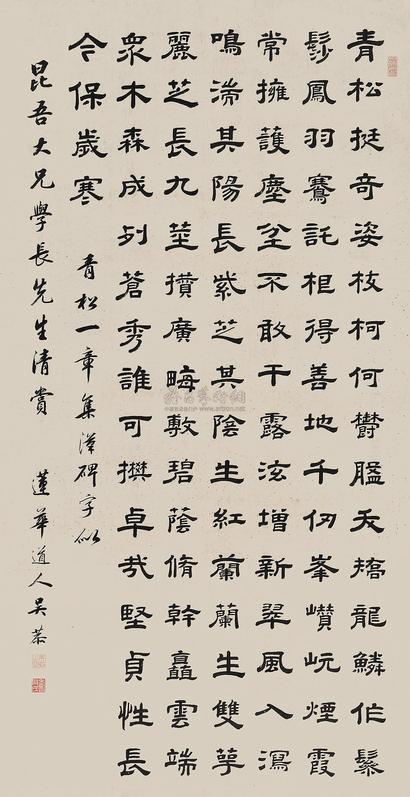 青松挺奇姿枝柯何欝盤夭矯龍鱗作鬃
髟鳳羽騫託根得善地千仞峯巑岏煙霞
常擁護塵坌不敢干露泫增新翠風入瀉
鳴湍其陽長紫芝其陰生紅蘭蘭生雙萼
麗芝長九莖攢廣畮敷碧蔭脩幹矗雲端
衆木森成列蒼秀誰可攀卓哉堅貞性長
令保歲寒
青松一章集漢碑字似
昆吾大兄學長先生清賞
蓮華道人吳恭